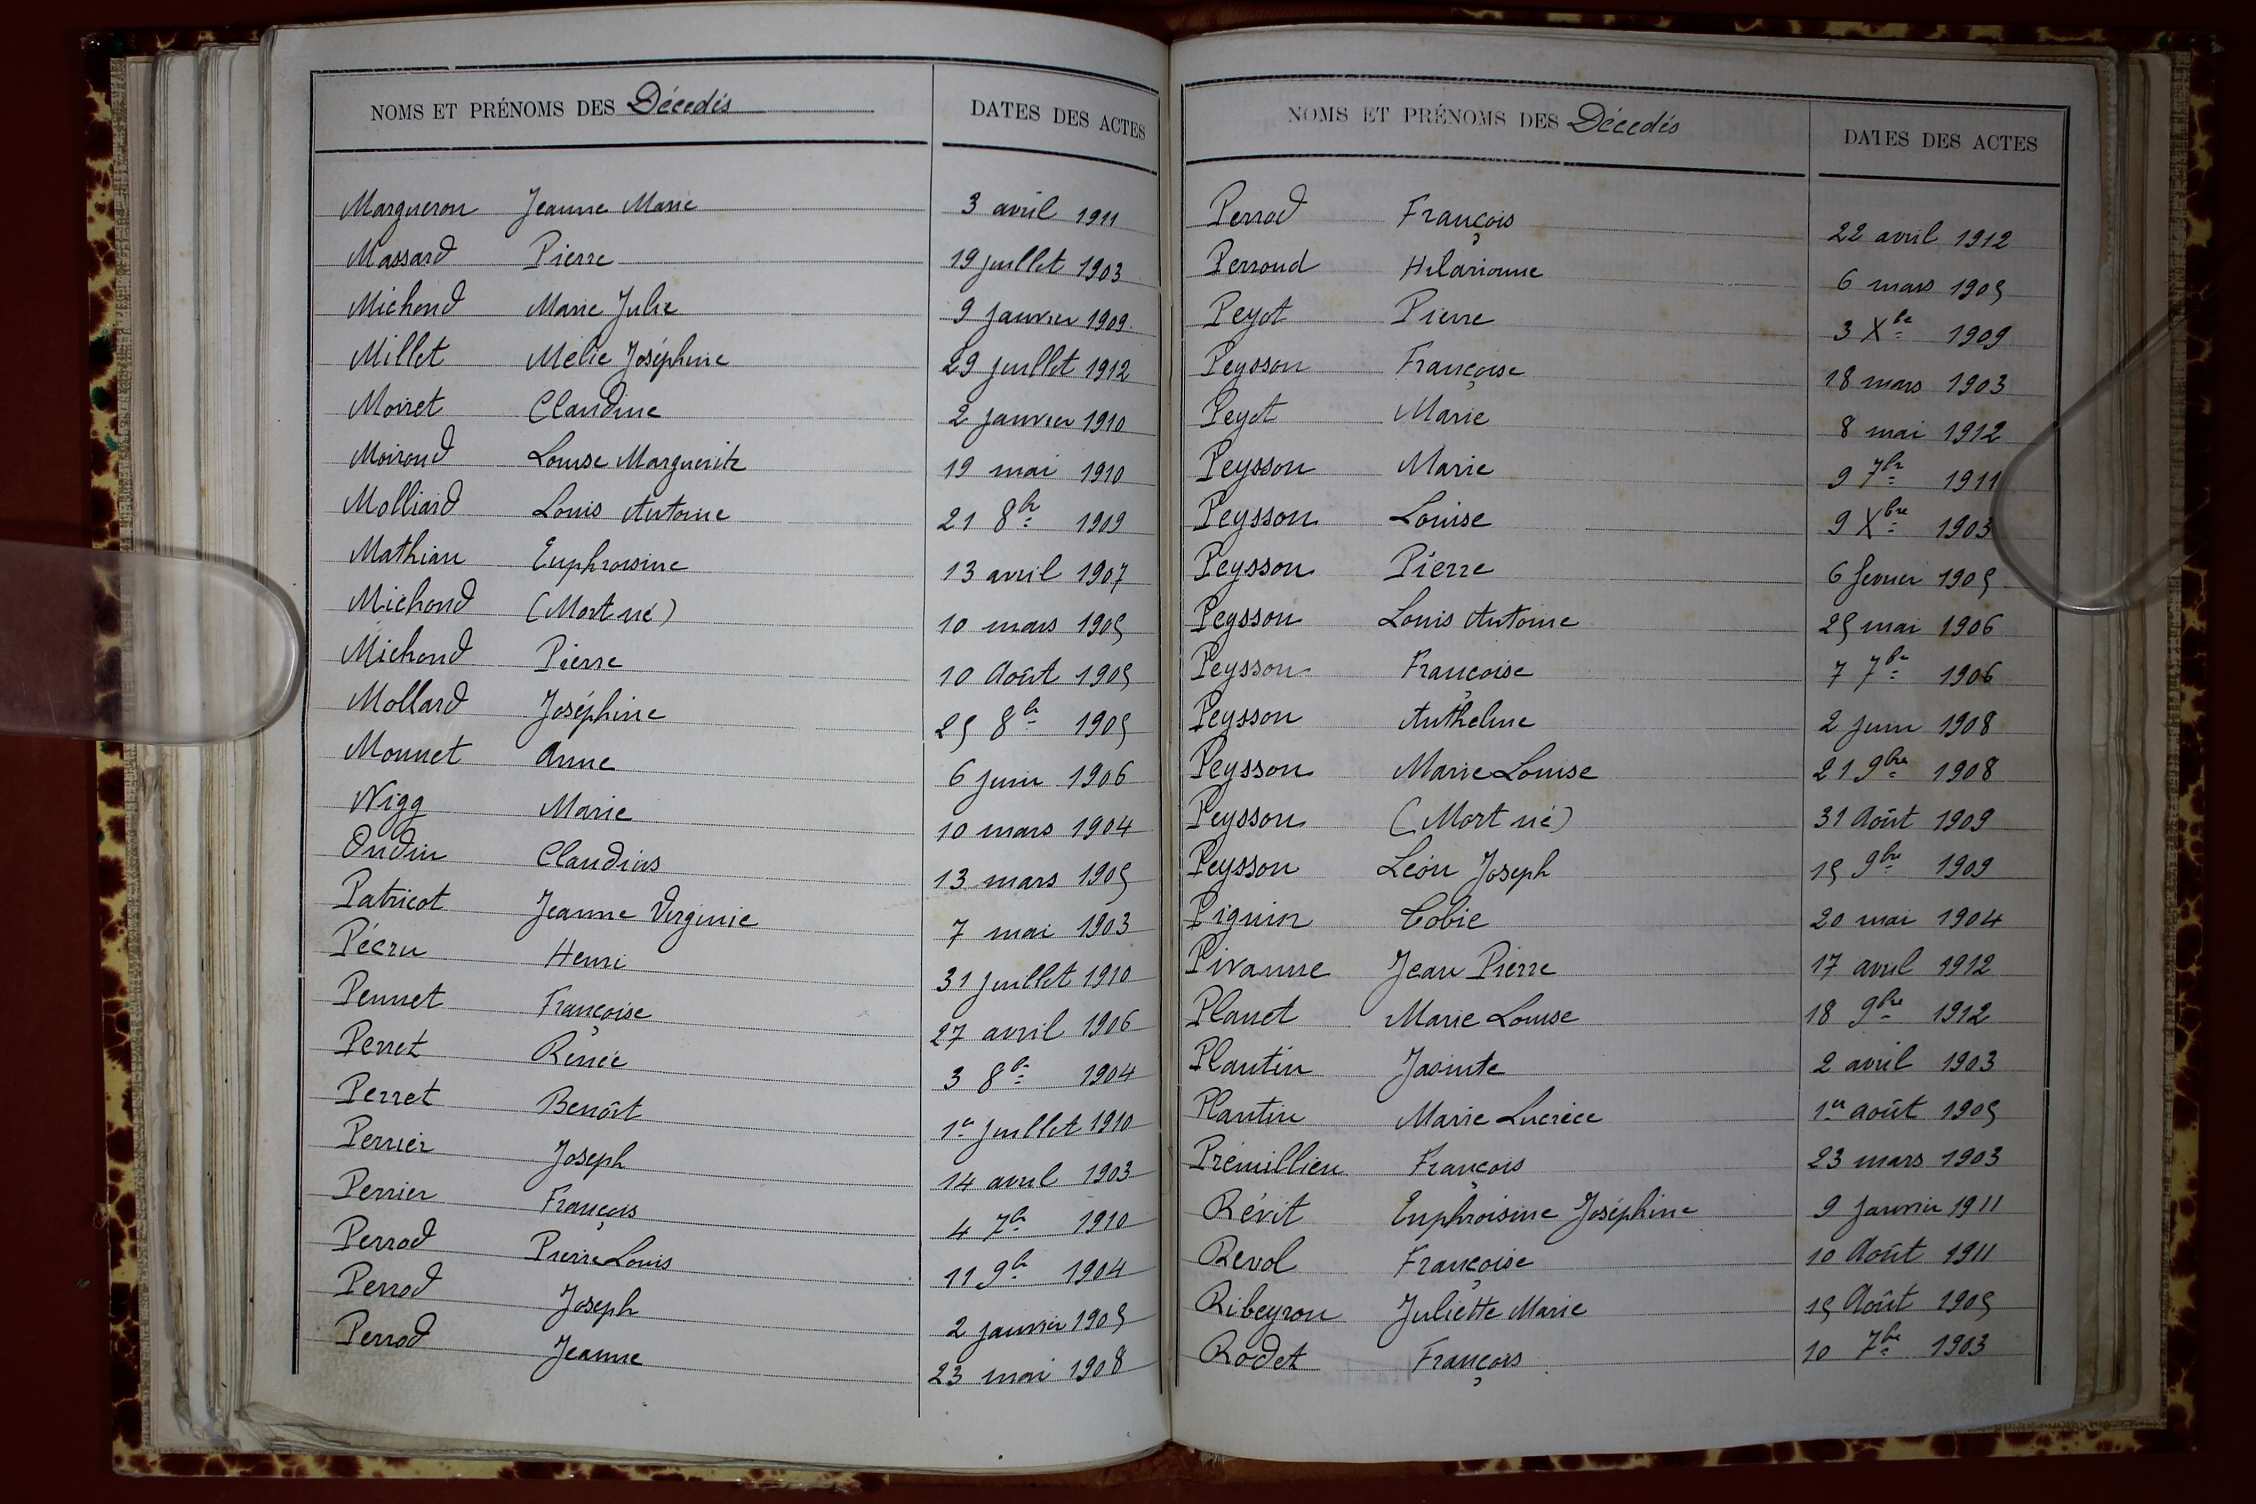 NOMS ET PRÉNOMS DES Décedés DATES DES ACTES
Margueron Jeanne Marie 3 avril 1911
Massard Pierre 19 juillet 1903
Michoud Marie Julie 9 janvier 1909
Millet Mélie Joséphine 29 juillet 1912
Moiret Claudine 2 janvier 1910
Moiroud Louise Marguerite 19 mai 1910
Molliard Louis Antoine 21 8bre 1909
Mathian Euphroisine 13 avril 1907
Michoud (Mort né) 10 mars 1905
Michoud Pierre 10 Août 1905
Mollard Joséphine 25 8bre 1905
Monnet Anne 6 juin 1906
Nigg Marie 10 mars 1904
Oudin Claudius 13 mars 1905
Patricot Jeanne Virginie 7 mai 1903
Pécru Henri 31 juillet 1910
Pennet Françoise 27 avril 1906
Perret Rénée 3 8bre 1904
Perret Benoît 1er juillet 1910
Perrier Joseph 14 avril 1903
Perrier François 4 7bre 1910
Perrod Pierre Louis 11 9bre 1904
Perrod Joseph 2 janvier 1905
Perrod Jeanne 23 mai 1908
NOMS ET PRÉNOMS DES Décedés DATES DES ACTES
Perrod François 22 avril 1912
Perroud Hilarionne 6 mars 1905
Peyot Pierre 3 Xbre 1909
Peysson Françoise 18 mars 1903
Peyot Marie 8 mai 1912
Peysson Marie 9 7bre 1911
Peysson Louise 9 Xbre 1903
Peysson Pierre 6 fevrier 1905
Peysson Louis Antoine 25 mai 1906
Peysson Françoise 7 7bre 1906
Peysson Anthelme 2 juin 1908
Peysson Marie Louise 21 9bre 1908
Peysson (Mort né) 31 Août 1909
Peysson Léon Joseph 15 9bre 1909
Pignier Tobie 20 mai 1904
Pivanne Jean Pierre 17 avril 1912
Planet Marie Louise 18 9bre 1912
Plantin Jasinte 2 avril 1903
Plantin Marie Lucrèce 1er août 1905
Prémillieu François 23 mars 1903
Révit Euphroisine Joséphine 9 janvier 1911
Revol Françoise 10 Août 1911
Ribeyron Juliette Marie 15 Août 1905
Rodet François 10 7bre 1903